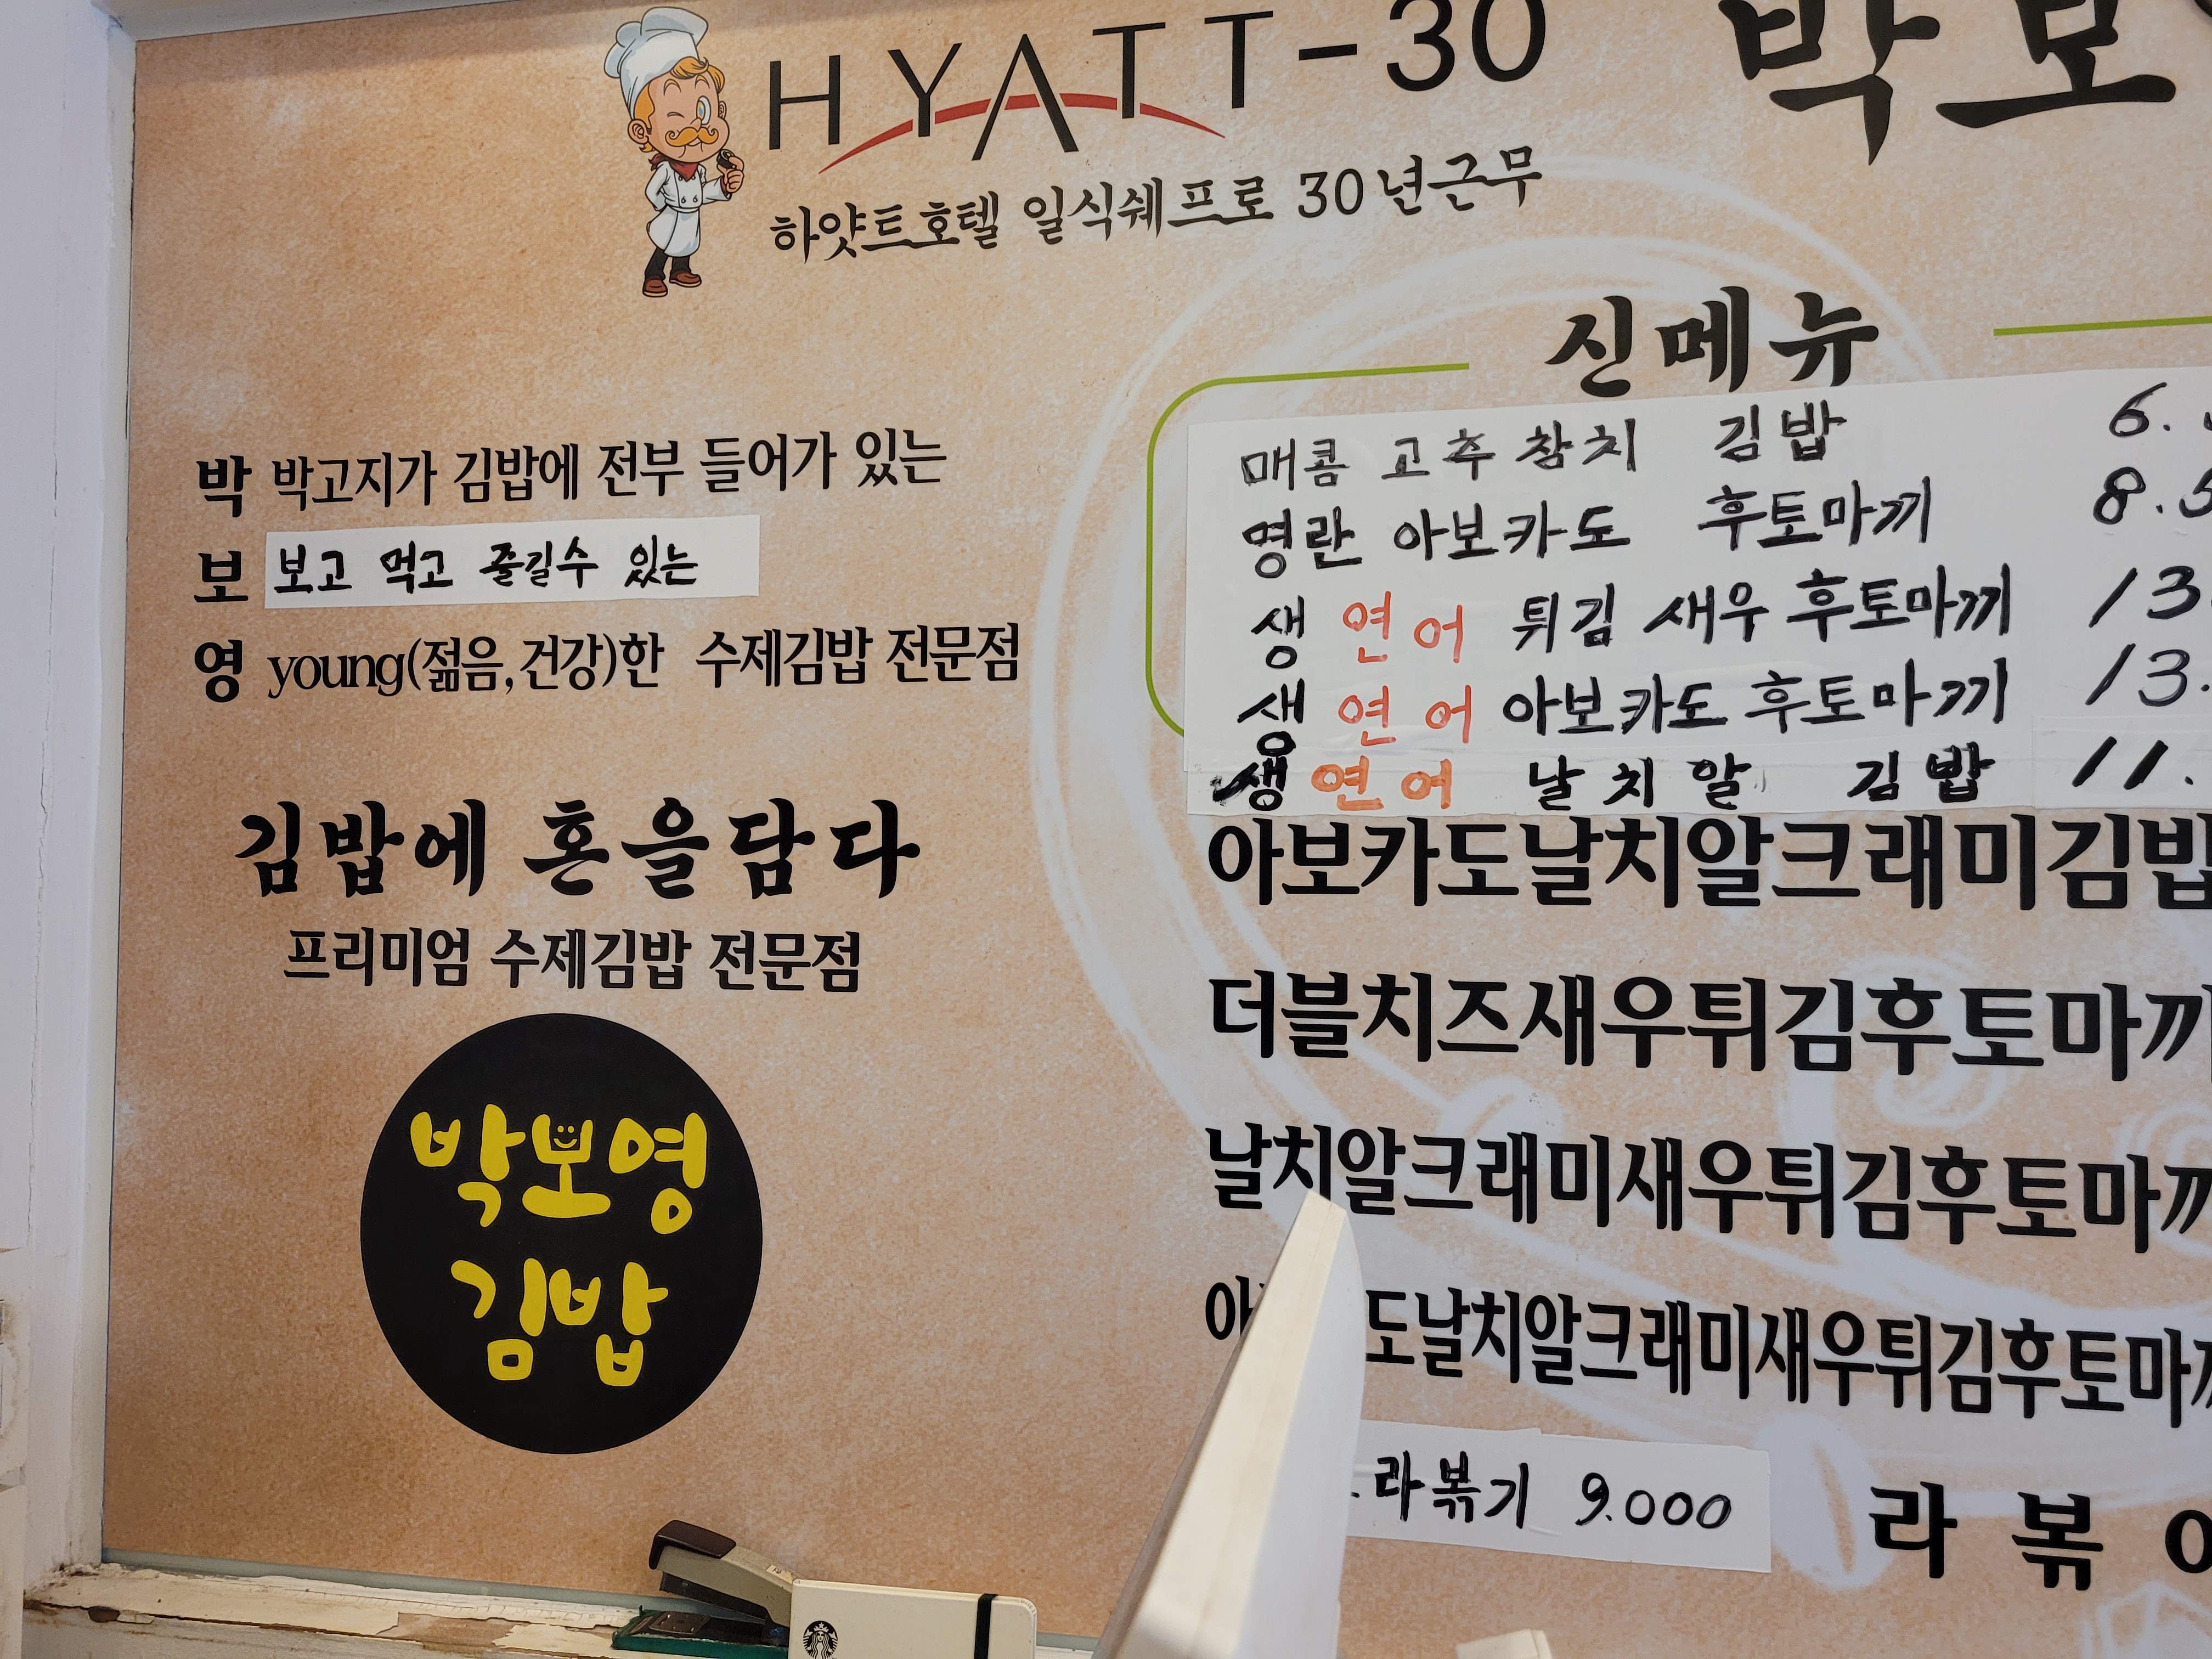 HYATT-30
하얏트호텔 일식쉐프로 30년근무
박보
박 박고지가 김밥에 전부 들어가 있는
보 보고 먹고 즐길수 있는
영 young(젊음,건강)한 수제김밥 전문점
김밥에 혼을담다
프리미엄 수제김밥 전문점
박보영
김밥
신메뉴
매콤 고추 참치 김밥 6.
명란 아보카도 후토마끼 8.5
생 연어 튀김 새우 후토마끼 13.
생 연어 아보카도 후토마끼 13.
생 연어 날치알 김밥 11.
아보카도날치알크래미김밥
더블치즈새우튀김후토마끼
날치알크래미새우튀김후토마끼
도날치알크래미새우튀김후토마끼
라볶기 9.000
라볶